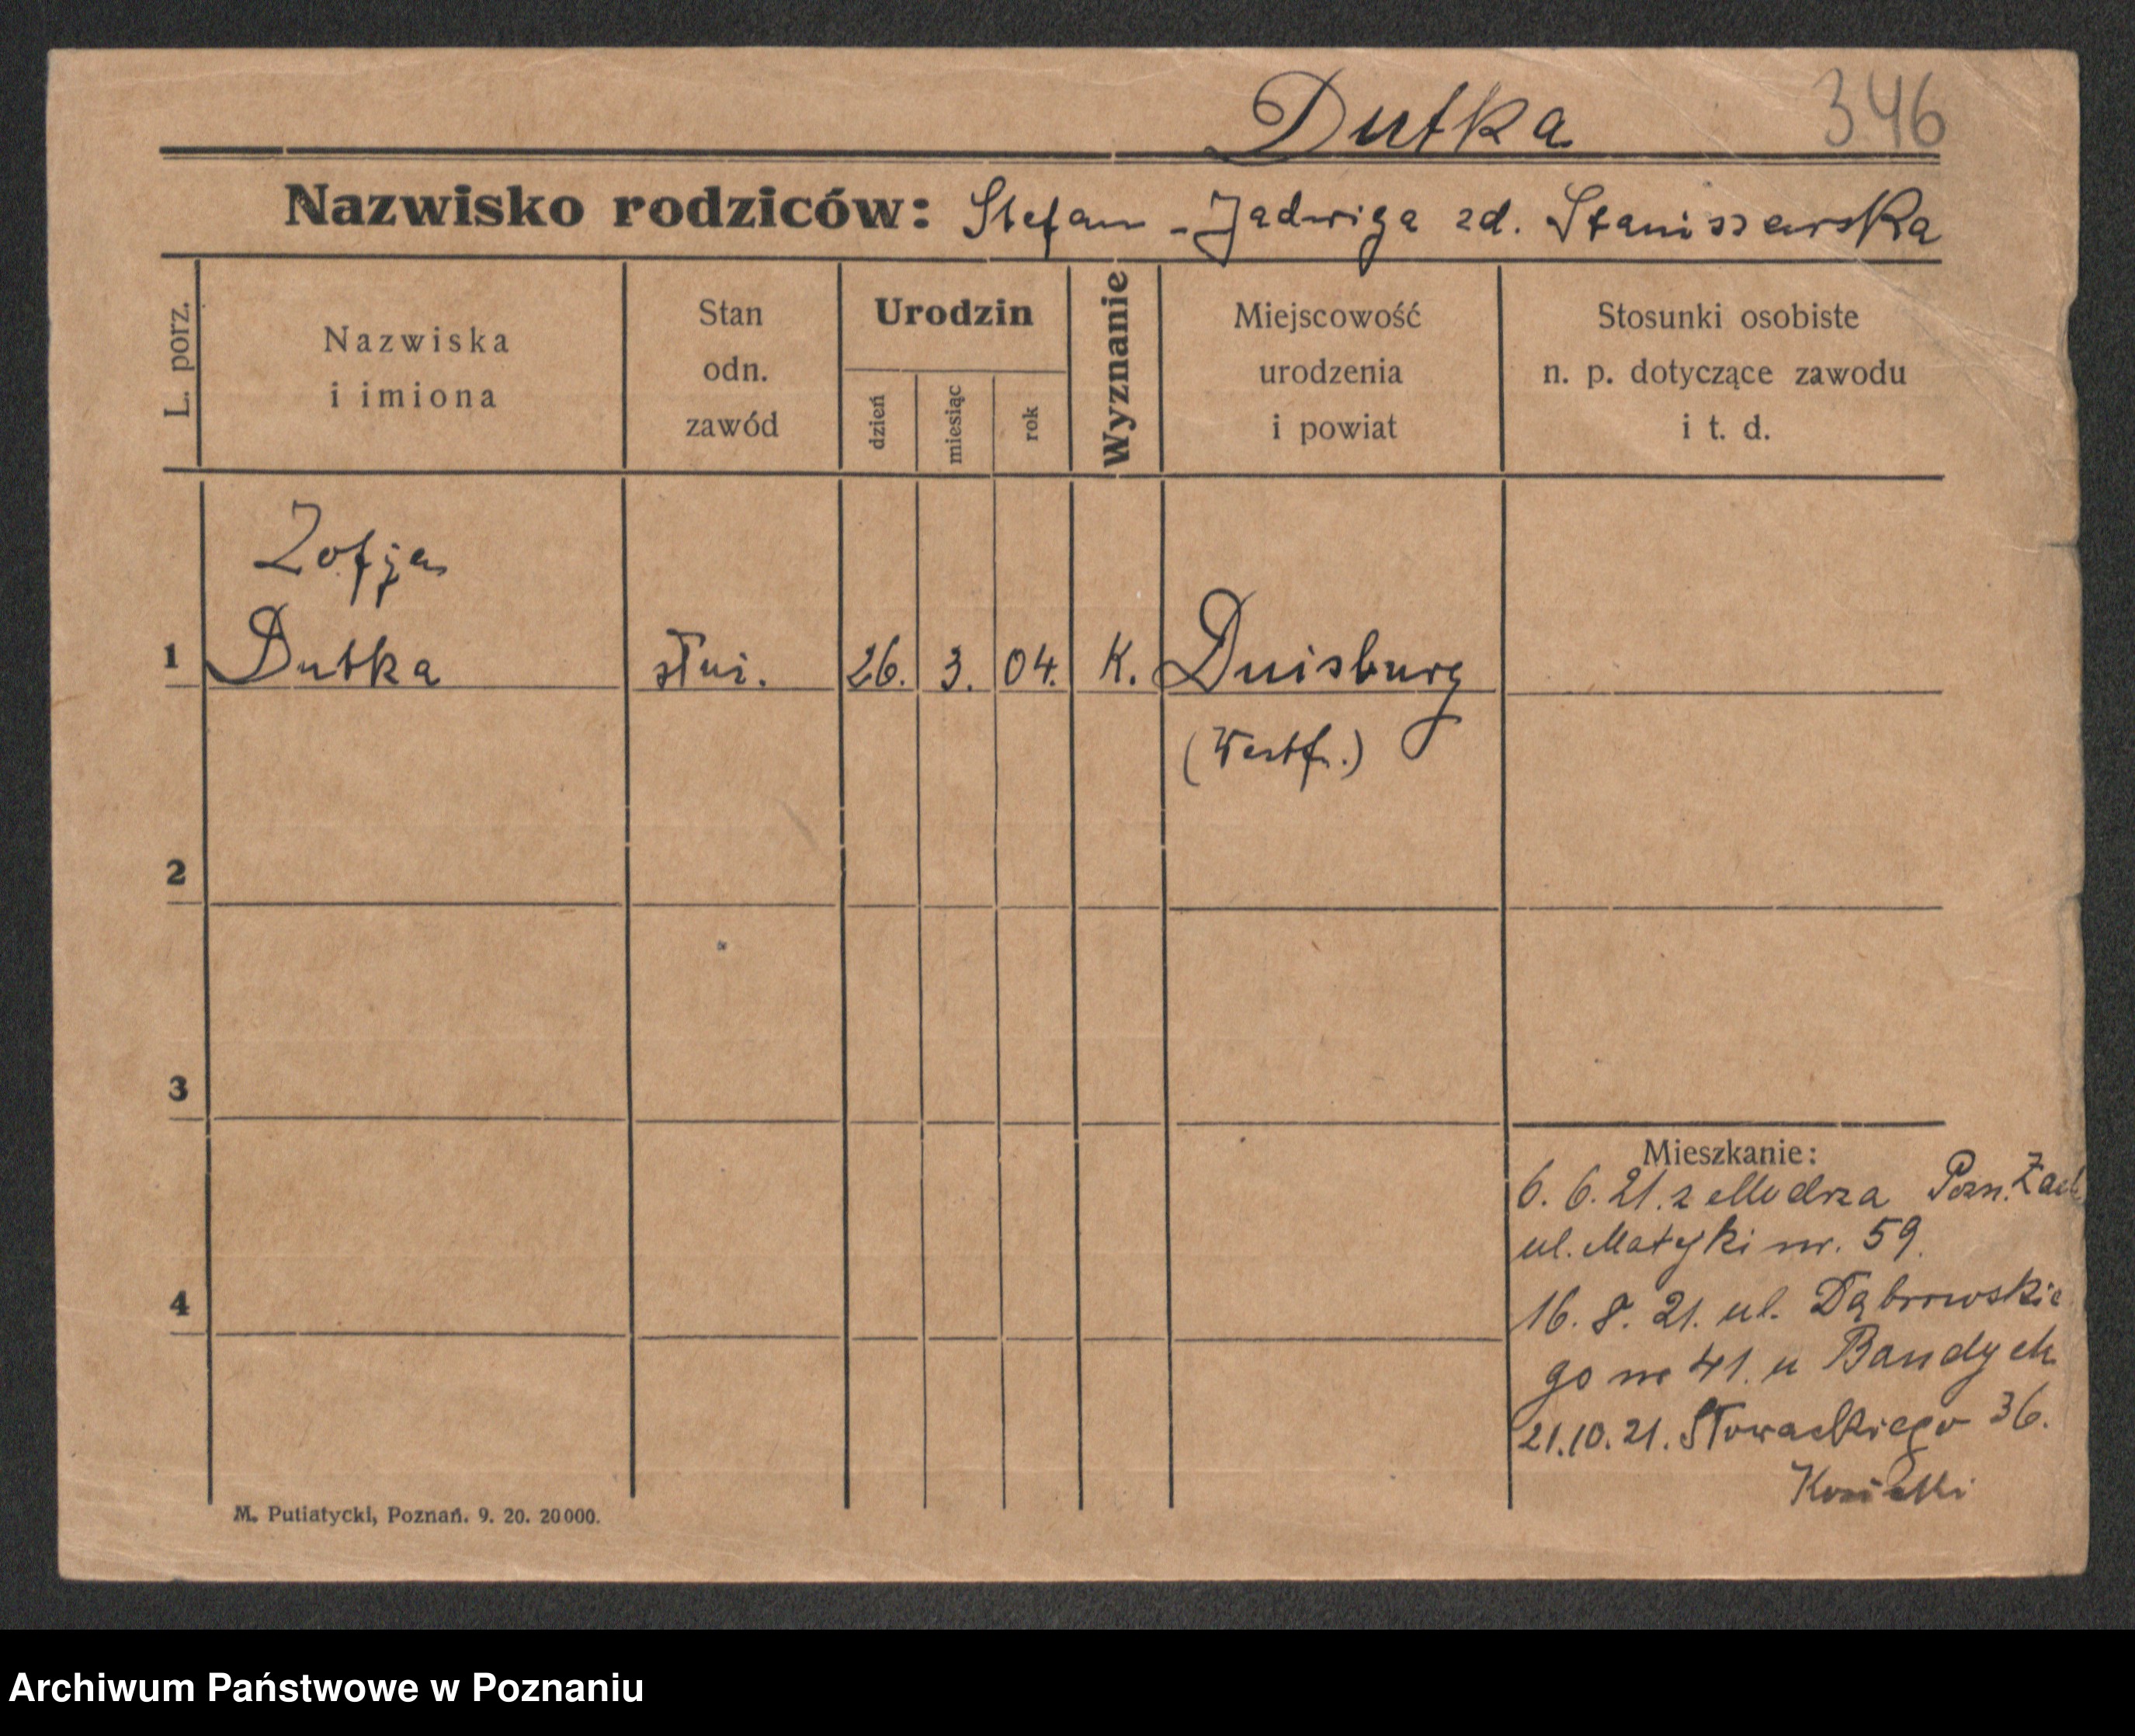 Dutka 346
Nazwisko rodziców: Stefan - Jadwiga zd. Staniszewska
L. porz.
Nazwiska
i imiona
Stan
odn.
zawód
Urodzin
dzień
miesiąc
rok
Wyznanie
Miejscowość
urodzenia
i powiat
Stosunki osobiste
n. p. dotyczące zawodu
i t. d.
Zofja
1 Dutka służ. 26. 3. 04. K. Duisburg
(Westf.)
2
3
Mieszkanie:
6. 6. 21. z Modrza Pozn. Zach
ul. Matejki nr. 59.
4
16. 8. 21. ul. Dąbrowskie
go nr 41. u Bandych
21.10.21. Słowackiego 36.
M. Putiatycki, Poznań. 9. 20. 20000.
Archiwum Państwowe w Poznaniu